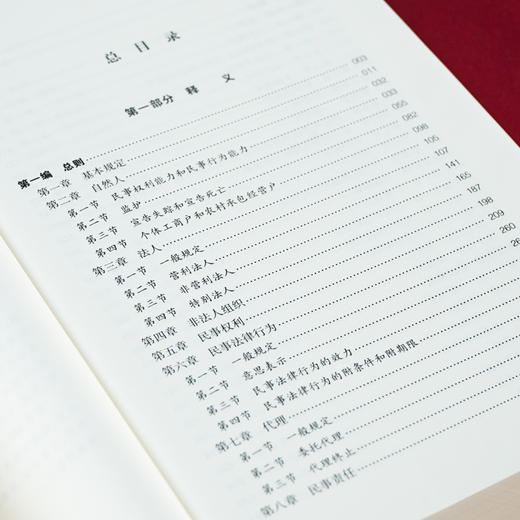 总目录
第一部分 释 义
第一编 总则 003
第一章 基本规定 011
第二章 自然人 032
第一节 民事权利能力和民事行为能力 033
第二节 监护 055
第三节 宣告失踪和宣告死亡 082
第四节 个体工商户和农村承包经营户 098
第三章 法人 105
第一节 一般规定 107
第二节 营利法人 141
第三节 非营利法人 165
第四节 特别法人 187
第四章 非法人组织 198
第五章 民事权利 209
第六章 民事法律行为 260
第一节 一般规定
第二节 意思表示
第三节 民事法律行为的效力
第四节 民事法律行为的附条件和附期限
第七章 代理
第一节 一般规定
第二节 委托代理
第三节 代理终止
第八章 民事责任